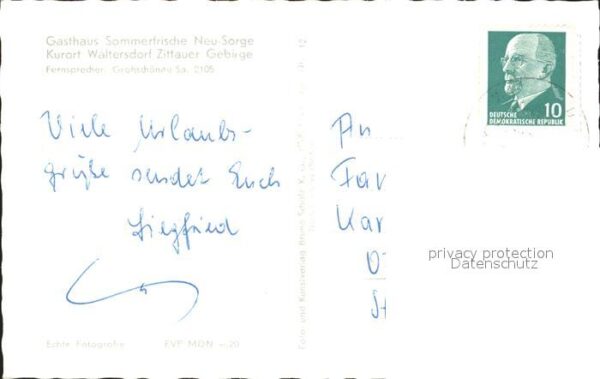 Gasthaus Sommerfrische Neu-Sorge
Kurort Waltersdorf Zittauer Gebirge
Fernsprecher: Großschönau Sa. 2105
Viele Urlaubs-
grüße sendet Euch
Siegfried
Echte Fotografie EVP MDN -,20
Foto- und Kunstverlag Bruno Scholz
12
DEUTSCHE
DEMOKRATISCHE REPUBLIK
10
An
Fa
Kar
privacy protection
Datenschutz